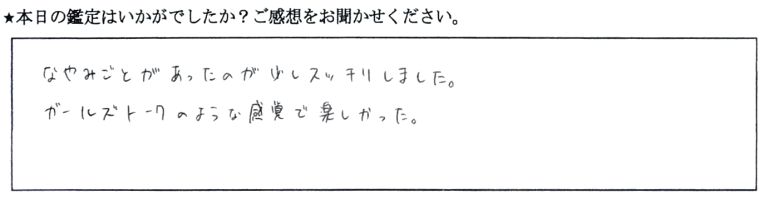 ★本日の鑑定はいかがでしたか？ご感想をお聞かせください。
なやみごとがあったのが少しスッキリしました。
ガールズトークのような感覚で楽しかった。